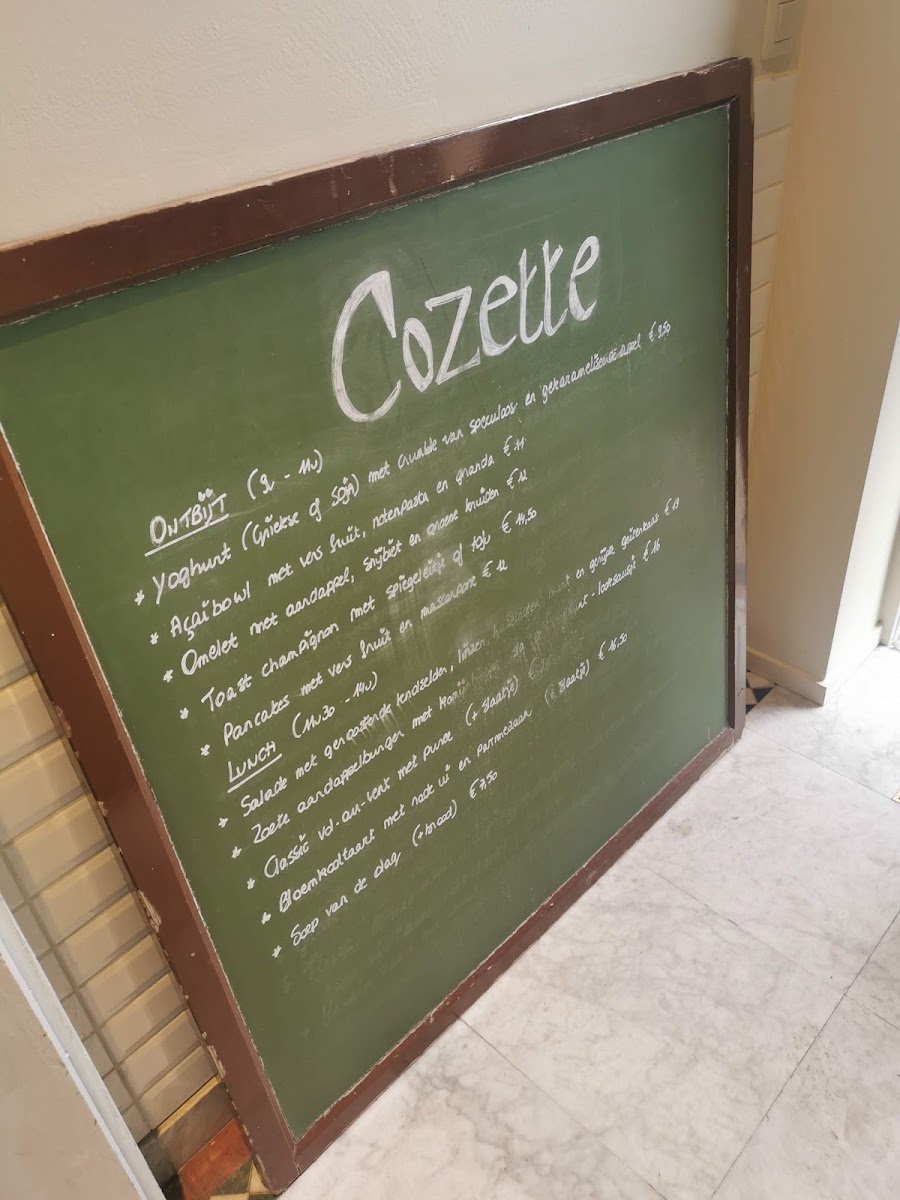 Cozette
ONTBIJT (9 - 11u)
* Yoghurt (Griekse of Soja) met crumble van speculoos en gekarameliseerde appel € 9,50
* Açaíbowl met vers fruit, notenpasta en granola € 11
* Omelet met aardappel, snijbiet en groene kruiden € 12
* Toast champignon met spiegeleitje of tofu € 14,50
* Pancakes met vers fruit en mascarpone € 12
LUNCH (11u30 - 14u)
* Salade met geroosterde eendselder, linzen, munt en gerijpte geitenkaas € 19
* Zoete aardappelburger met - looksausje € 16
* Classic vol-au-vent met puree (+ slaatje)
* Bloemkooltaart met rode ui en parmezaan (+ slaatje) € 16,50
* Soep van de dag (+ brood) € 7,50